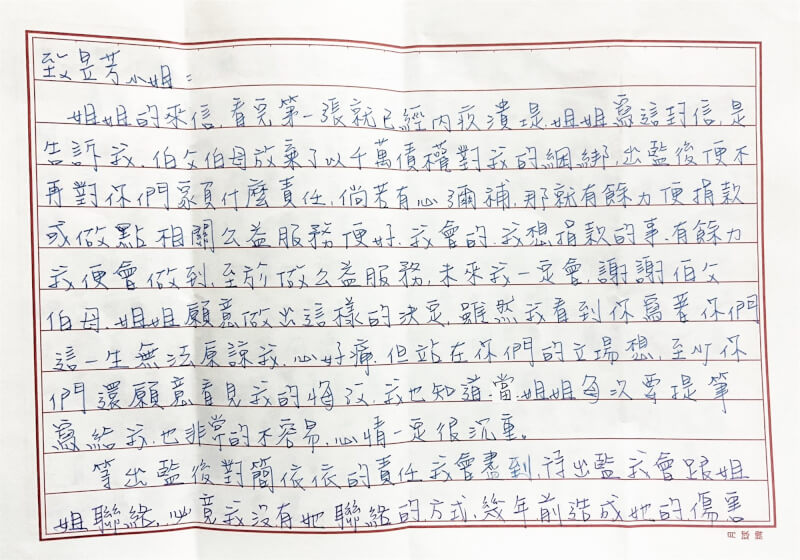 致昱芳小姐：
姐姐的來信，看見第一張就已經內疚潰堤，姐姐寫這封信，是
告訴我，伯父伯母放棄了以千萬債權對我的綑綁，出監後便不
再對你們家負什麼責任，倘若有心彌補，那就有餘力便捐款
或做點相關公益服務便好，我會的，我想捐款的事，有餘力
我便會做到，至於做公益服務，未來我一定會，謝謝伯父
伯母，姐姐願意做出這樣的決定，雖然我看到你寫著你們
這一生無法原諒我，心好痛，但站在你們的立場想，至少你
們還願意看見我的悔改，我也知道，當姐姐每次要提筆
寫給我，也非常的不容易，心情一定很沉重。
等出監後對簡依依的責任，我會盡到，待出監我會跟姐
姐聯絡，必竟我沒有她聯絡的方式，幾年前造成她的傷害